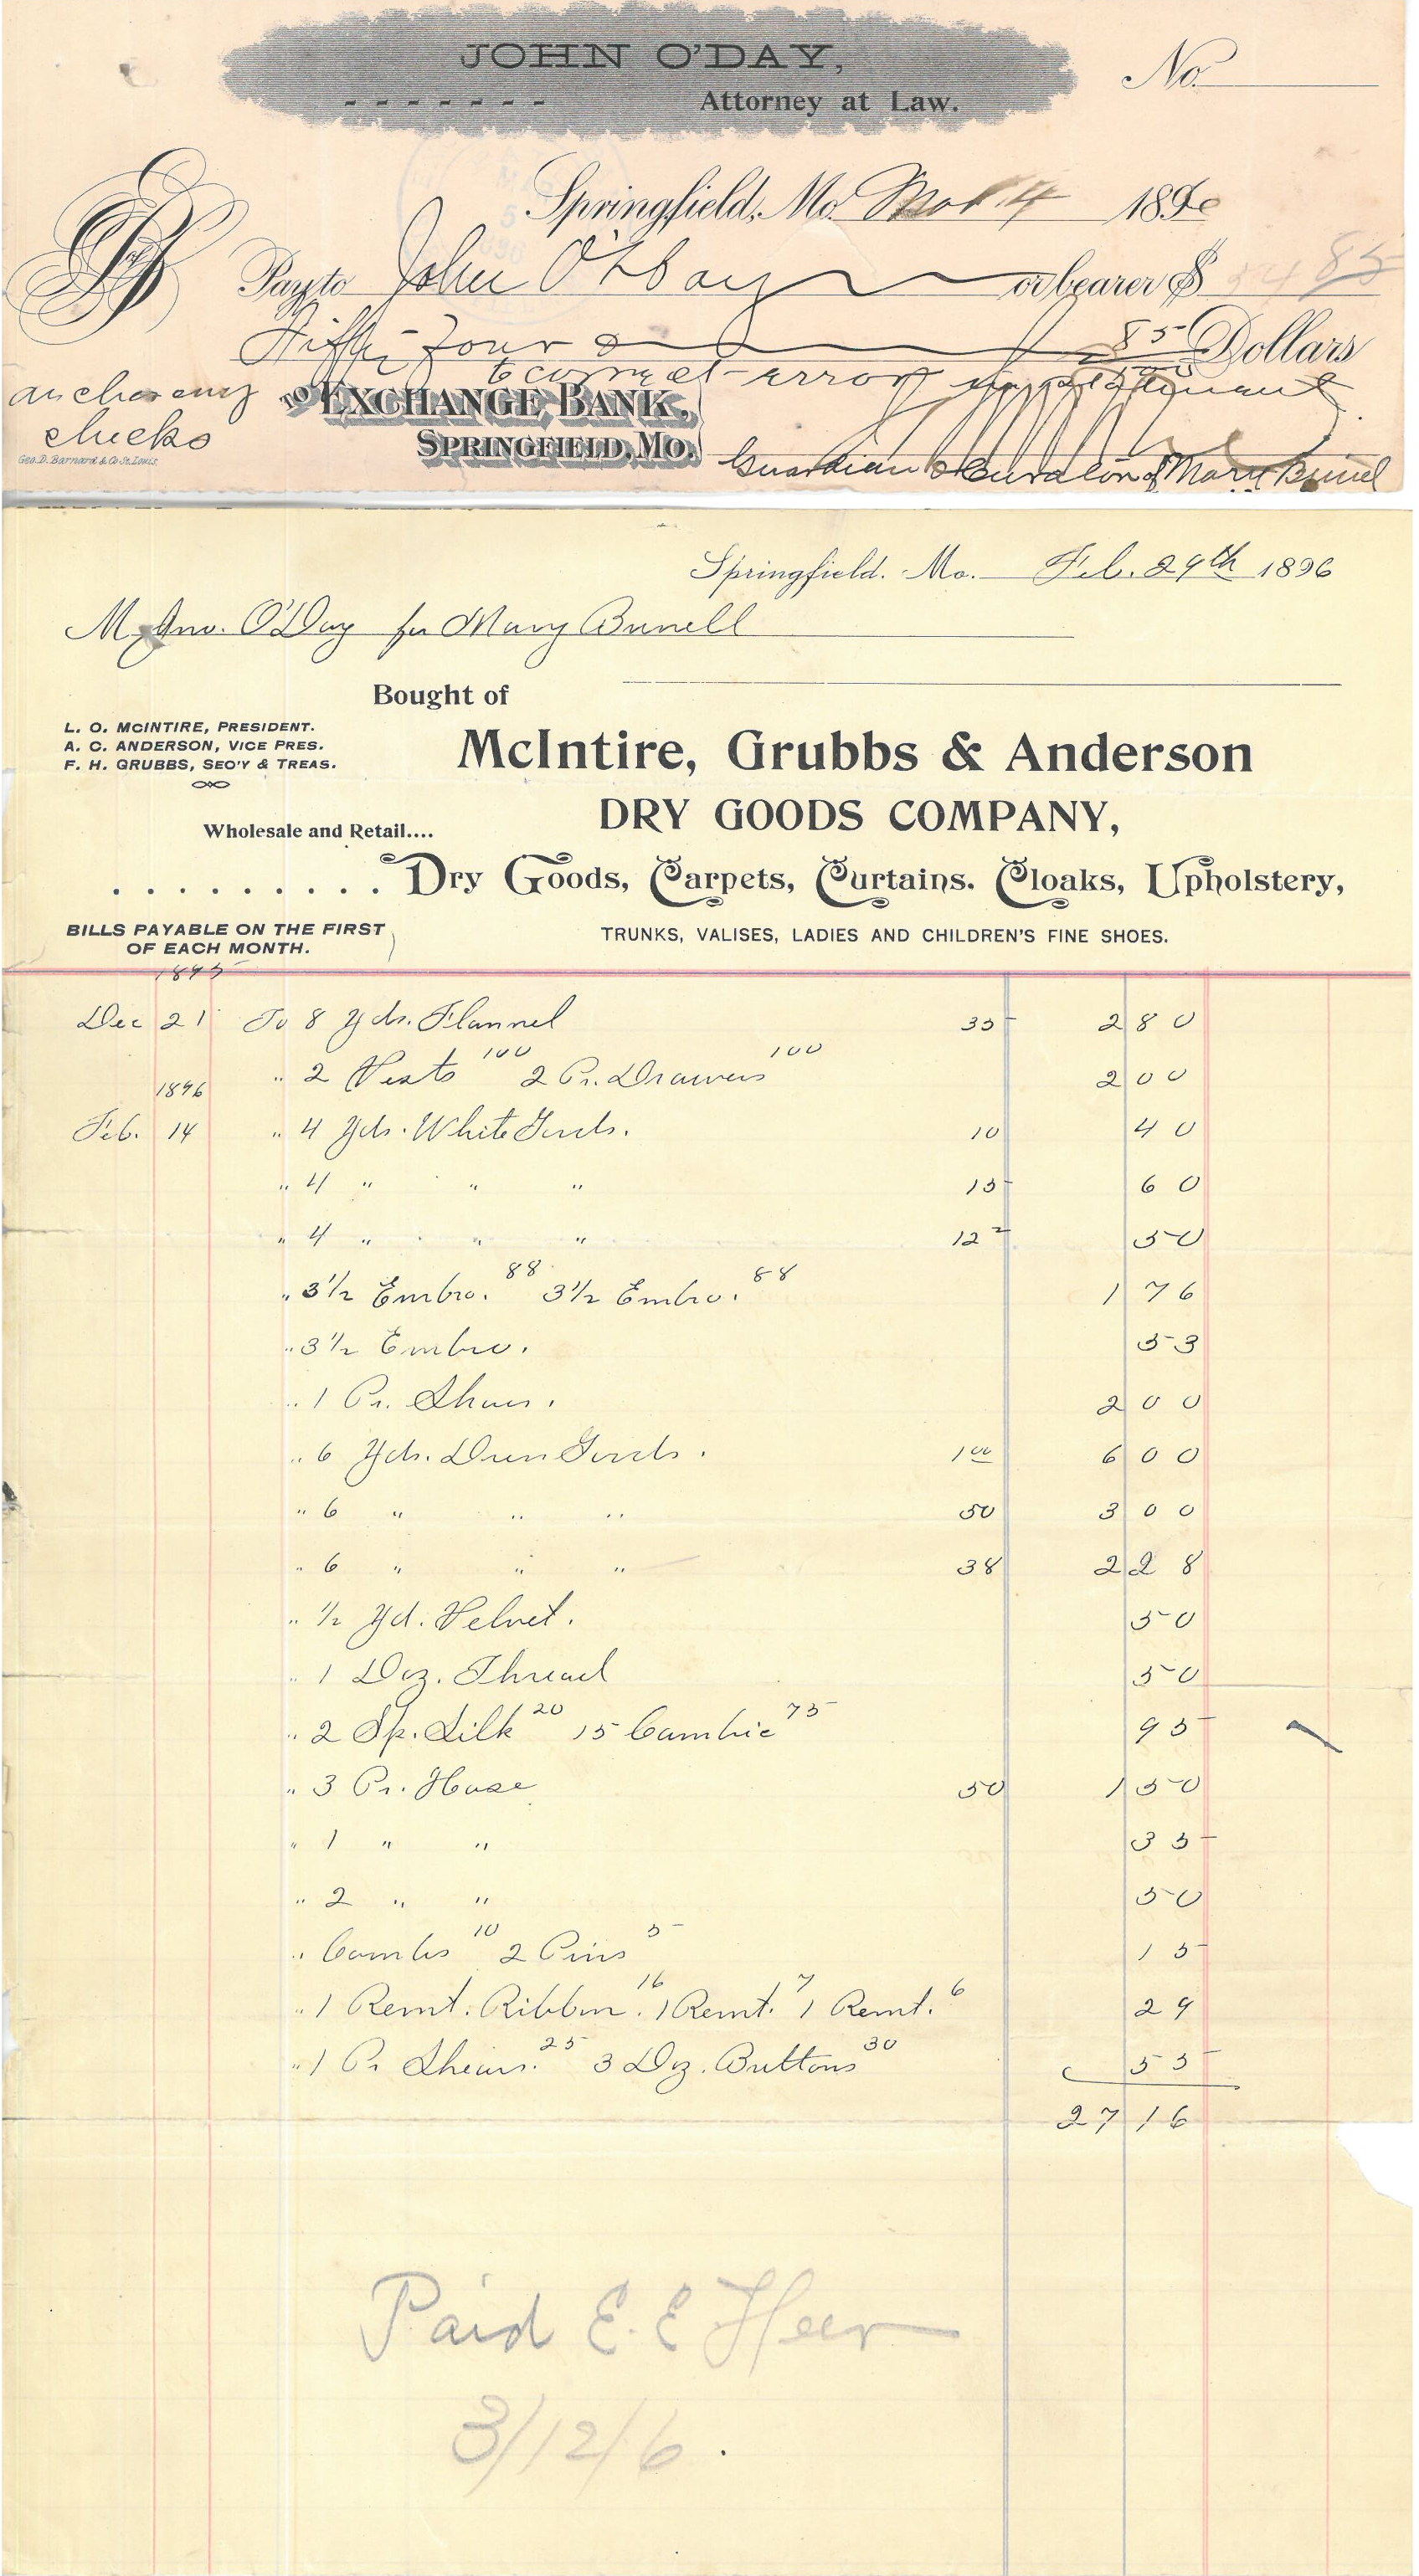 JOHN O'DAY,
Attorney at Law.
No.
Springfield, Mo. Mar 4 1896
Pay to John O'Day or bearer $ 54 85
Fifty four & 85/100 Dollars
to correct error in
TO EXCHANGE BANK,
SPRINGFIELD, MO.
checks
Geo. D. Barnard & Co St. Louis.
Guardian & Curator of Mary Bunel
Springfield, Mo. Feb. 29th 1896
M Jno. O'Day for Mary Bunell
Bought of
L. O. MCINTIRE, PRESIDENT.
A. C. ANDERSON, VICE PRES.
F. H. GRUBBS, SEC'Y & TREAS.
McIntire, Grubbs & Anderson
DRY GOODS COMPANY,
Wholesale and Retail....
......... Dry Goods, Carpets, Curtains. Cloaks, Upholstery,
BILLS PAYABLE ON THE FIRST
OF EACH MONTH.
TRUNKS, VALISES, LADIES AND CHILDREN'S FINE SHOES.
1895
Dec 21 To 8 Yds. Flannel 35 2 80
" 2 Vests 100 2 Pr. Drawers 100 2 00
1896
Feb. 14 " 4 Yds. White Goods. 10 40
" 4 " " " 15 60
" 4 " " " 12 2 50
" 3 1/2 Embro. 88 3 1/2 Embro. 88 1 76
" 3 1/2 Embro. 53
" 1 Pr. Shoes. 2 00
" 6 Yds. Dress Goods. 1 00 6 00
" 6 " " " 50 3 00
" 6 " " " 38 2 28
" 1/2 Yd. Velvet. 50
" 1 Doz. Thread 50
" 2 Sp. Silk 20 15 Cambric 75 95
" 3 Pr. Hose 50 1 50
" 1 " " 35
" 2 " " 50
" Combs 10 2 Pins 5 15
" 1 Remt. Ribbon. 16 1 Remt. 7 1 Remt. 6 29
" 1 Pr Shears. 25 3 Doz. Buttons 30 55
27 16
Paid E. E Heer
3/12/6.